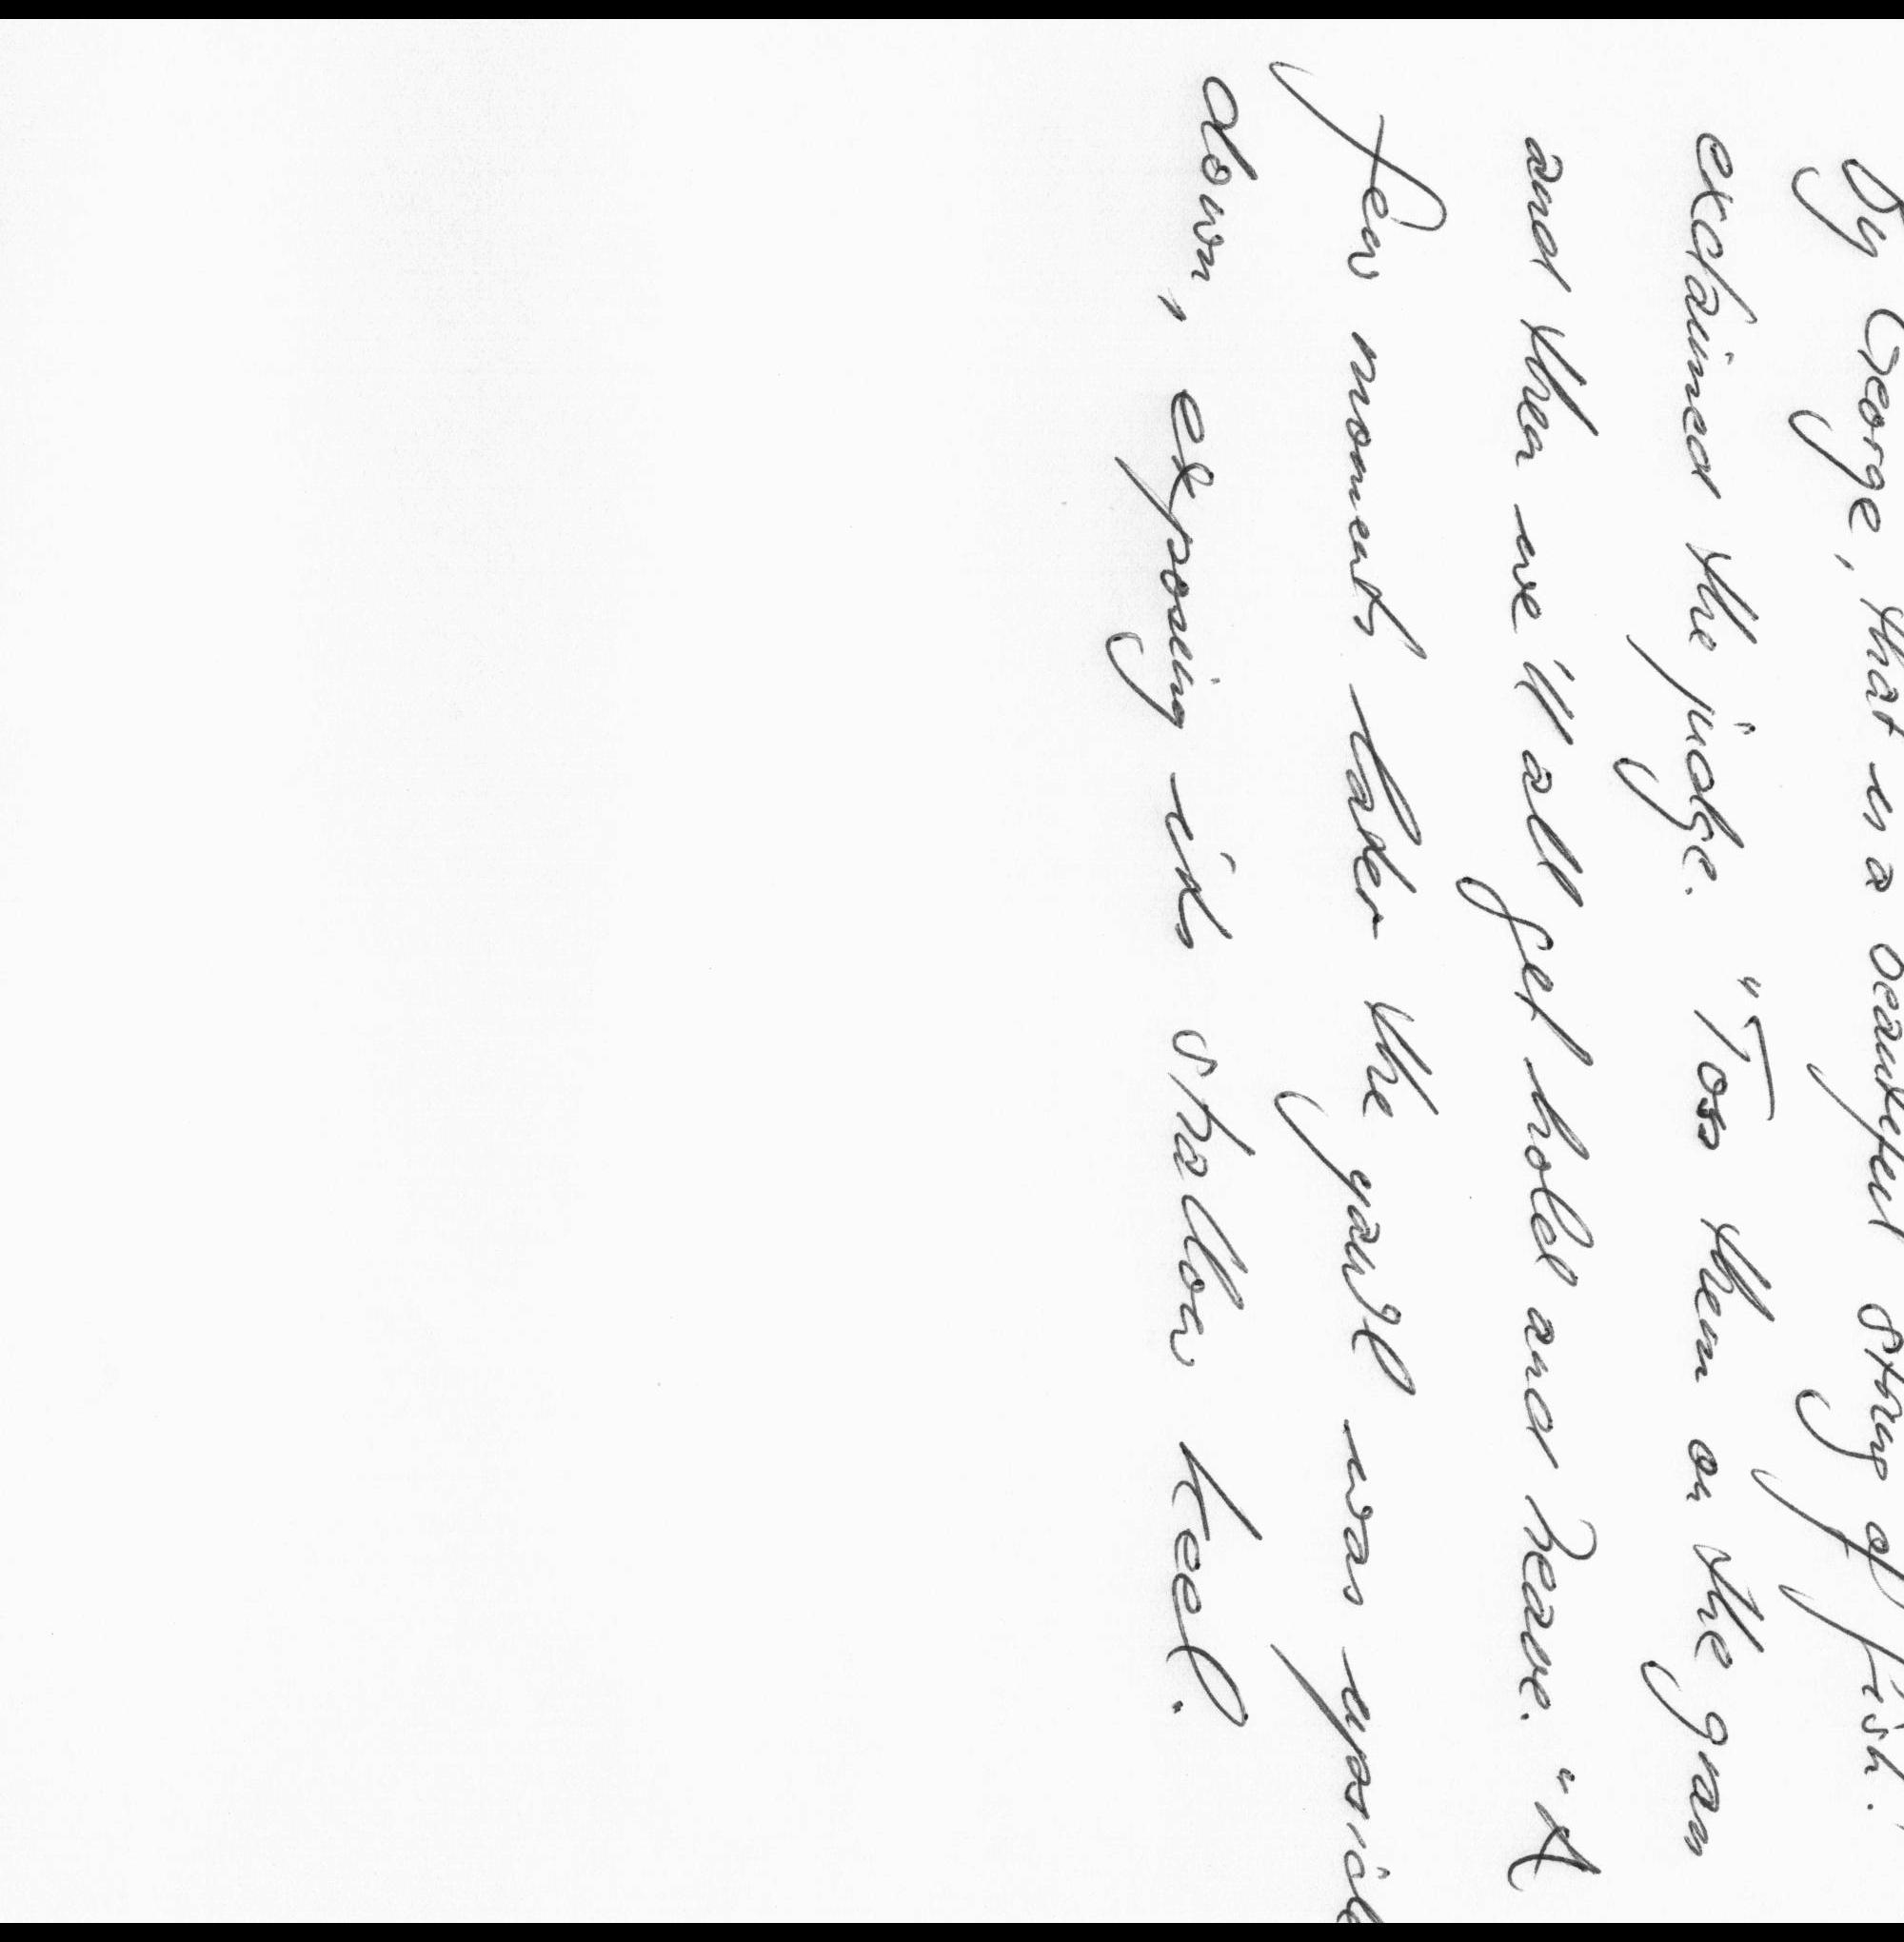 By George, that is a beautiful string of fish."
exclaimed the judge. "Toss them on the grass
and then we'll all get hold and heave." A
few moments later the yawl was upside
down, exposing its shallow keel.